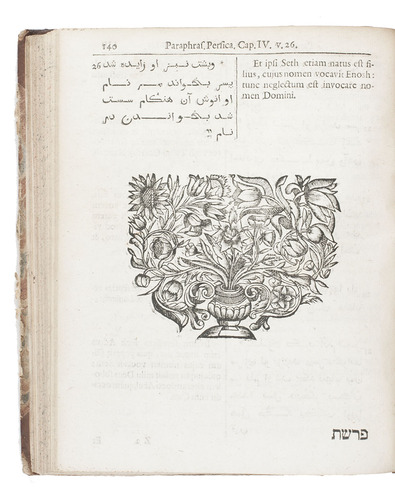 140 Paraphras. Persica, Cap. IV. v. 26.
26 * وبشت نيز او زاييده شد
پسر بخواند مر نام
او انوش آن هنگام سست
شد بخواندن در
نام
Et ipsi Seth etiam natus est fi-
lius, cujus nomen vocavit Enosh:
tunc neglectum est invocare no-
men Domini.
פרשת